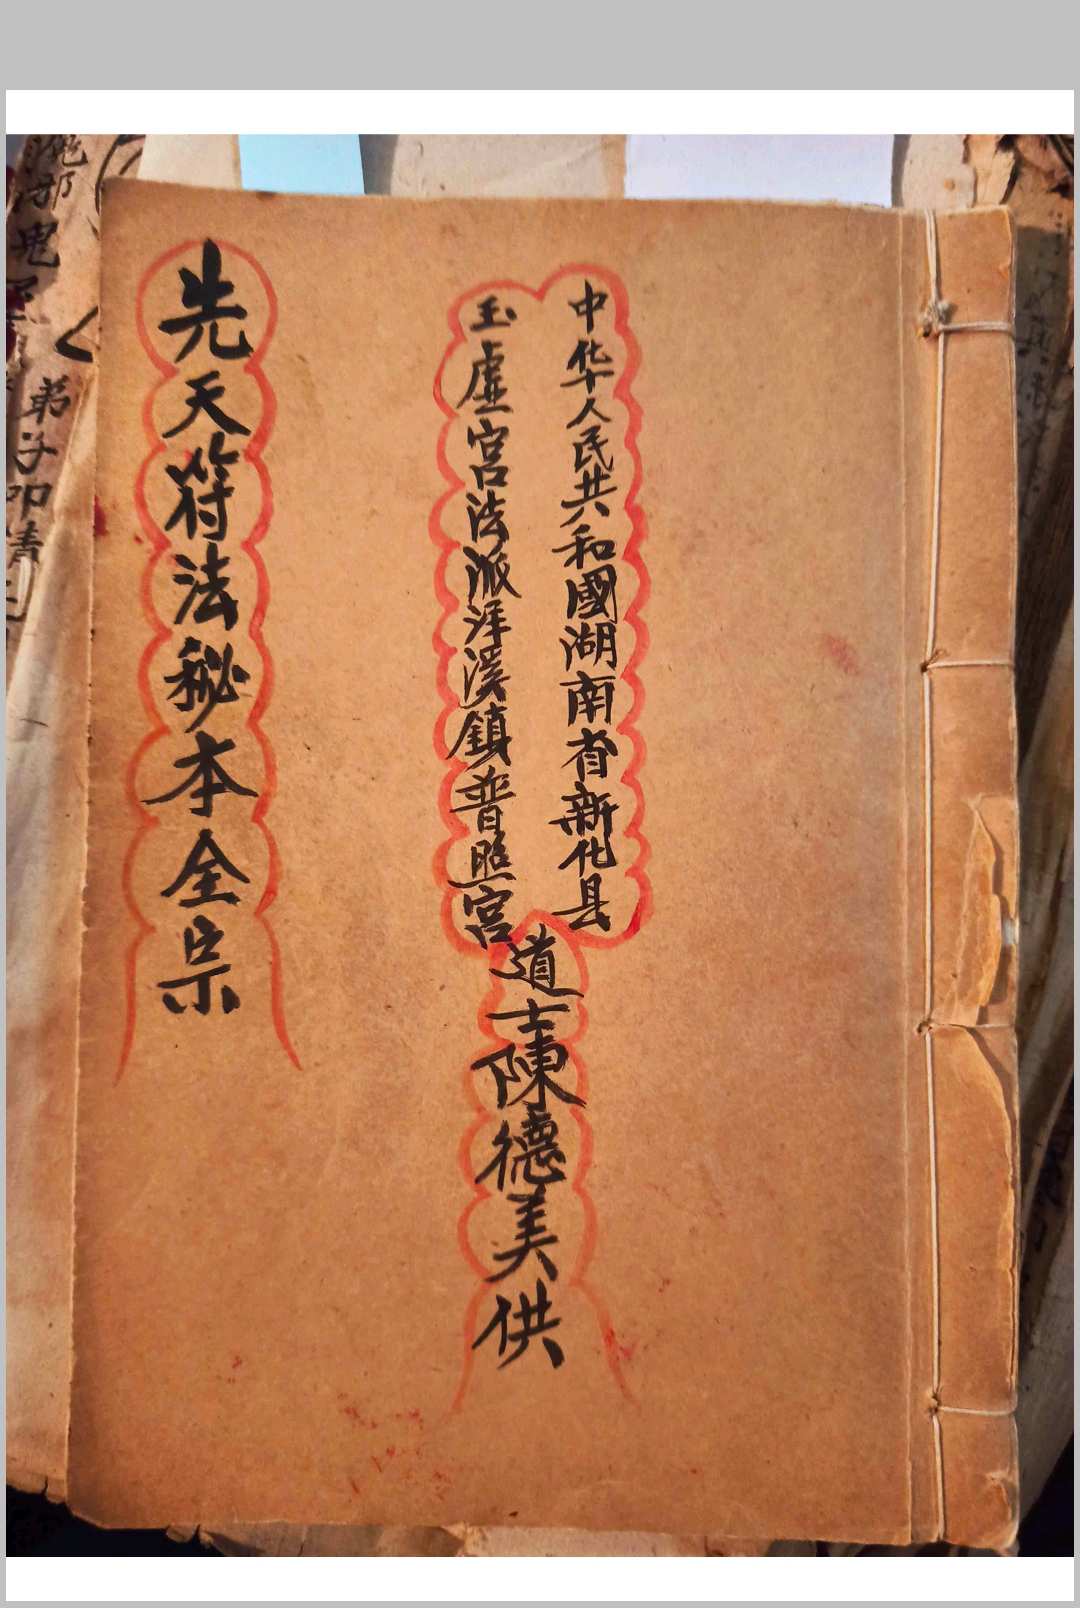 中华人民共和國湖南省新化县
玉虛宫法派洋溪鎮普照宫
道士陳德美供
先天符法秘本全宗
弟子叩請